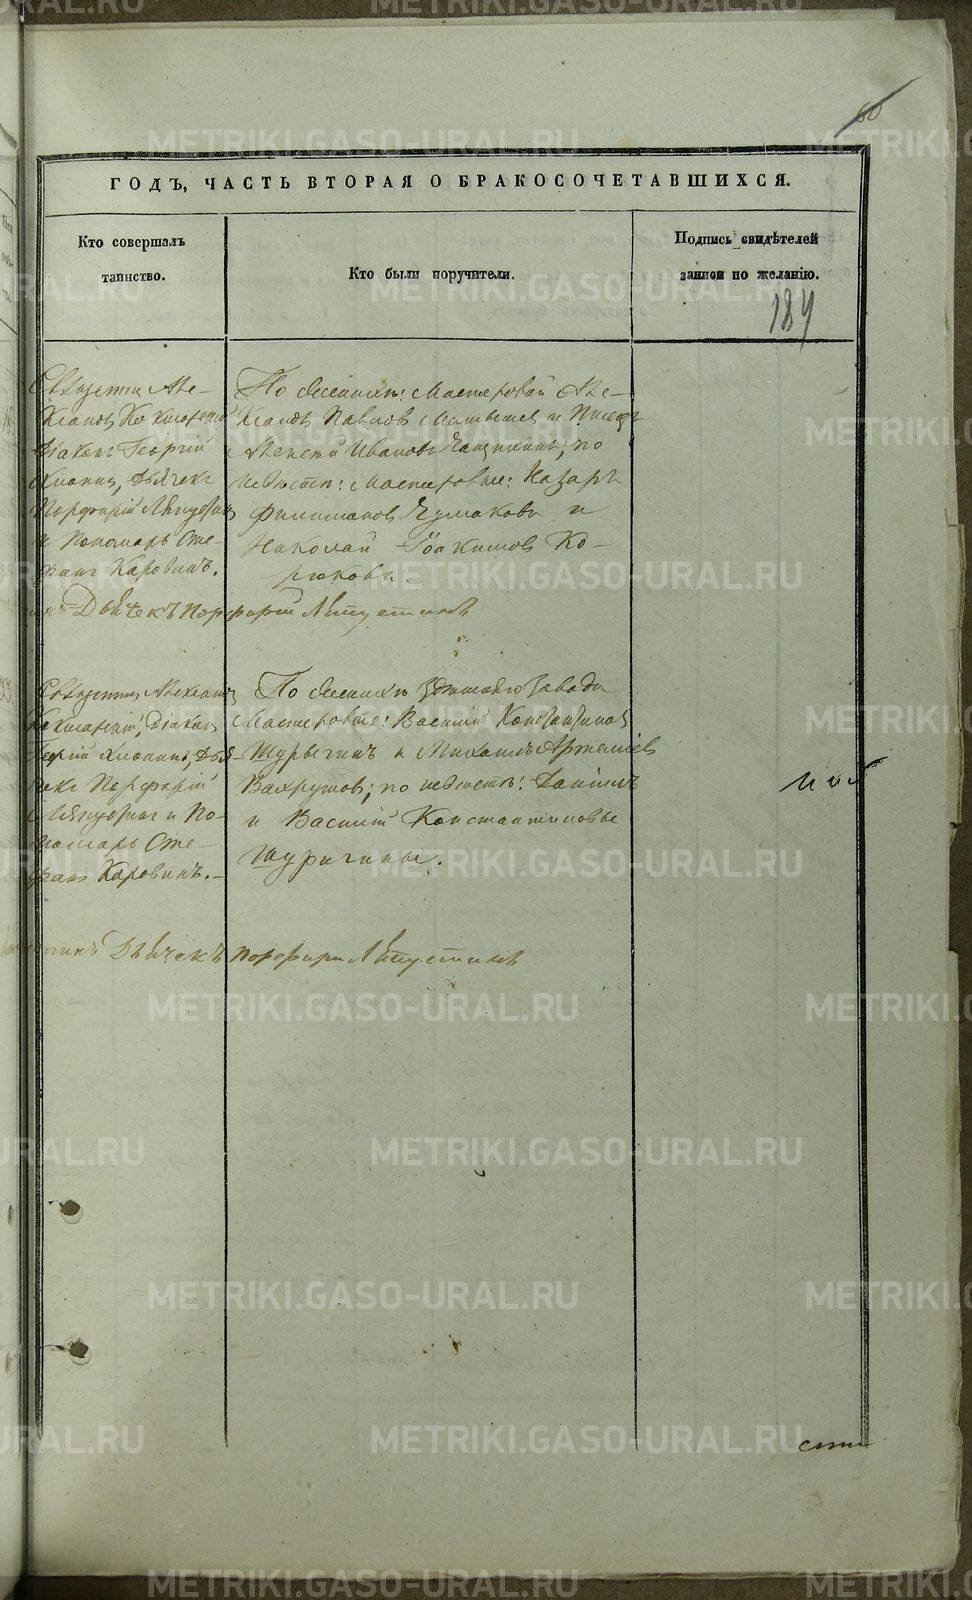 60
ГОДЪ, ЧАСТЬ ВТОРАЯ О БРАКОСОЧЕТАВШИХСЯ.
Кто совершалъ
таинство.
Кто были поручители.
Подпись свидѣтелей
записи по желанію.
184
Священникъ Але-
ксандръ
Діаконъ Георгій
Дьячекъ
Порфирій Ляпустинъ
и Пономарь Сте-
фанъ Каровинъ.
По женихѣ: Мастеровой Але-
ксандръ Павловъ и Писецъ
Алексѣй Ивановъ по
невѣстѣ: Мастеровые: Назаръ
Филимоновъ Чумаковъ и
Николай Іоакимовъ Ко-
рюковы.
Дьячекъ Порфирій Ляпустинъ
Священникъ Александръ
Діаконъ
Георгій Дья-
чекъ Порфирій
Ляпустинъ и По-
номарь Сте-
фанъ Каровинъ.
По женихѣ здѣшняго завода
Мастеровые: Василій Константиновъ
Шурыгинъ и Михаилъ Артемьевъ
Вахрушовъ; по невѣстѣ: Даніилъ
и Василій Константиновы
Шуригины.
Дьячекъ Порфирій Ляпустинъ
METRIKI.GASO-URAL.RU